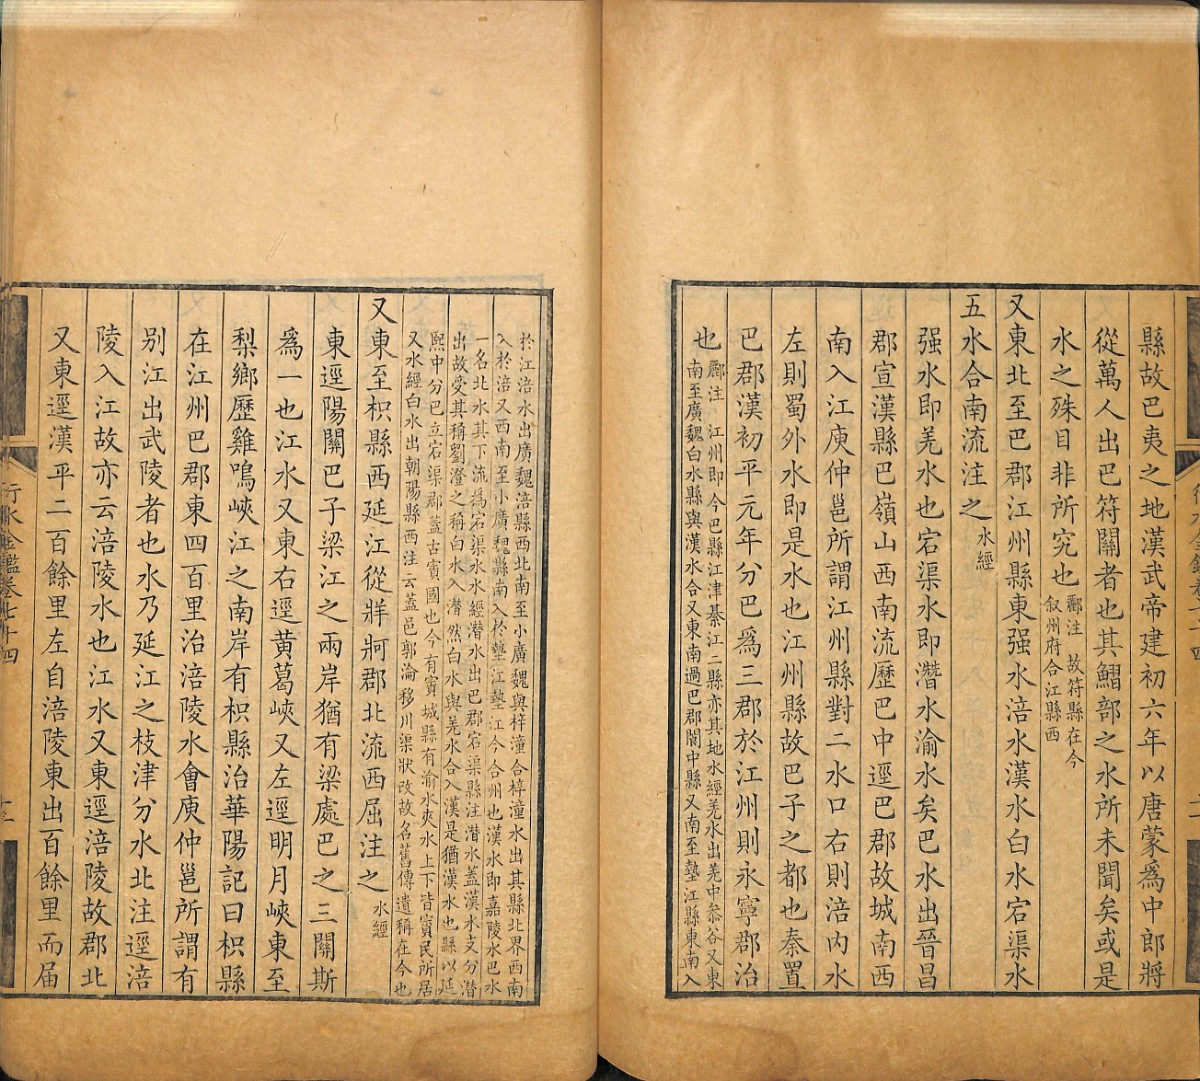 縣故巴夷之地漢武帝建初六年以唐蒙爲中郎將
從萬人出巴符關者也其鰼部之水所未聞矣或是
水之殊目非所究也酈注 故符縣在今
叙州府合江縣西
又東北至巴郡江州縣東强水涪水漢水白水宕渠水
五水合南流注之水經
强水即羌水也宕渠水即潛水渝水矣巴水出晉昌
郡宣漢縣巴嶺山西南流歷巴中逕巴郡故城南西
南入江庾仲邕所謂江州縣對二水口右則涪内水
左則蜀外水即是水也江州縣故巴子之都也秦置
巴郡漢初平元年分巴爲三郡於江州則永寧郡治
也酈注 江州即今巴縣江津綦江二縣亦其地水經羌水出羌中參谷又東
南至廣魏白水縣與漢水合又東南過巴郡閬中縣又南至墊江縣東南入
於江涪水出廣魏涪縣西北南至小廣魏與梓潼合梓潼水出其縣北界西南
入於涪又西南至小廣魏縣南入於墊江墊江今合州也漢水即嘉陵水巴水
一名北水其下流爲宕渠水水經潛水出巴郡宕渠縣注潛水蓋漢水支分潛
出故受其稱劉澄之稱白水入潛然白水與羌水合入漢是猶漢水也縣以延
熙中分巴立宕渠郡蓋古賨國也今有賨城縣有渝水夾水上下皆賨民所居
又水經白水出朝陽縣西注云蓋邑郭淪移川渠狀改故名舊傳遺稱在今也
又東至枳縣西延江從牂牁郡北流西屈注之水經
東逕陽關巴子梁江之兩岸猶有梁處巴之三關斯
爲一也江水又東右逕黄葛峽又左逕明月峽東至
梨鄉歷雞鳴峽江之南岸有枳縣治華陽記曰枳縣
在江州巴郡東四百里治涪陵水會庾仲邕所謂有
别江出武陵者也水乃延江之枝津分水北注逕涪
陵入江故亦云涪陵水也江水又東逕涪陵故郡北
又東逕漢平二百餘里左自涪陵東出百餘里而届
行水金鑑卷七十四